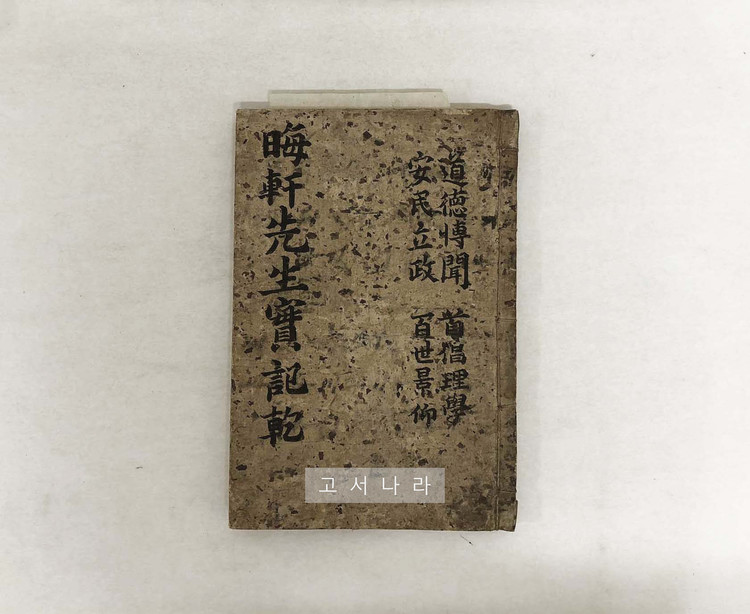 道德愽聞 首倡理學
安民立政 百世景仰
晦軒先生實記乾
고서나라